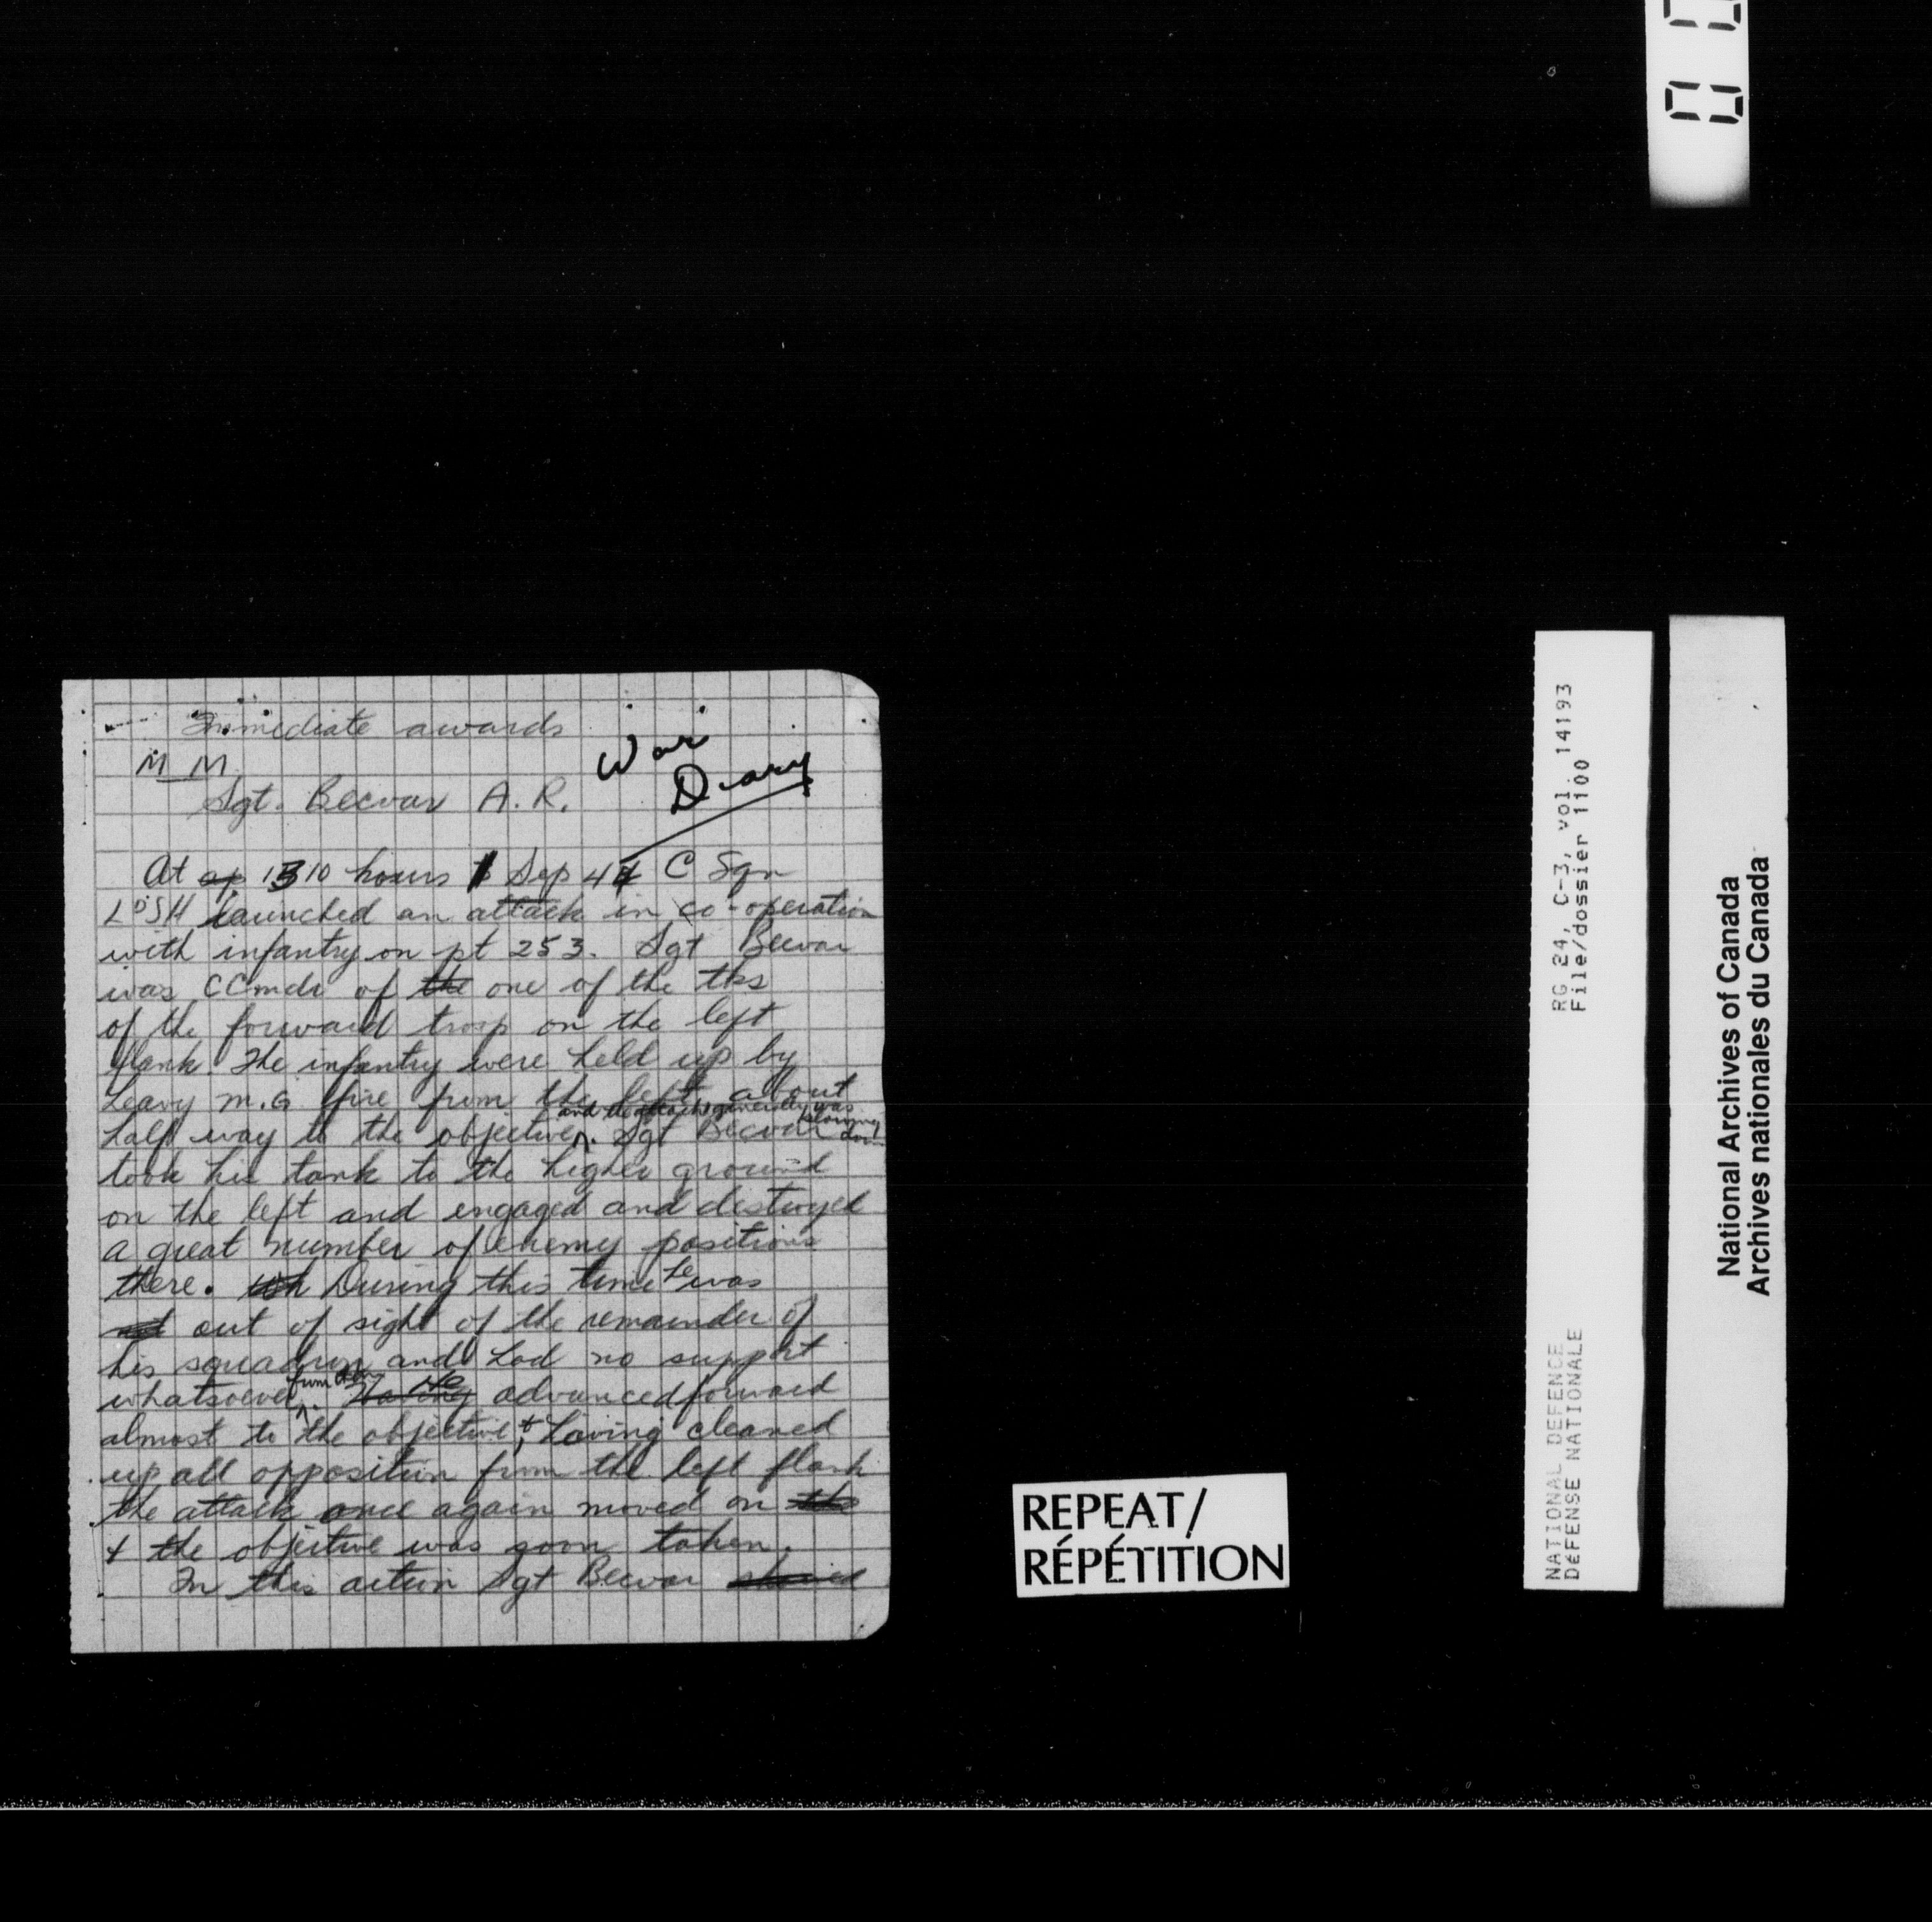 Immediate awards
M M
War
Diary
Sgt. Becvar A. R.
At ap 1310 hours 1 Sep 44 C Sqn
LdSH launched an attack in co-operation
with infantry on pt 253. Sgt Becvar
was CCmdr of the one of the tks
of the forward troop on the left
flank. The infantry were held up by
heavy M.G fire from the left about
and the attack generally was
slowing
down
half way to the objective. Sgt Becvar
took his tank to the higher ground
on the left and engaged and destroyed
a great number of enemy positions
there. During this time he was
out of sight of the remainder of
his squadron and had no support
from them
whatsoever. Having He advanced forward
almost to the objective, & having cleaned
up all opposition from the left flank
the attack once again moved on the
& the objective was soon taken.
In this action Sgt Becvar showed
REPEAT/
RÉPÉTITION
NATIONAL DEFENCE
DÉFENSE NATIONALE
RG 24, C-3, vol. 14193
File/dossier 1100
National Archives of Canada
Archives nationales du Canada